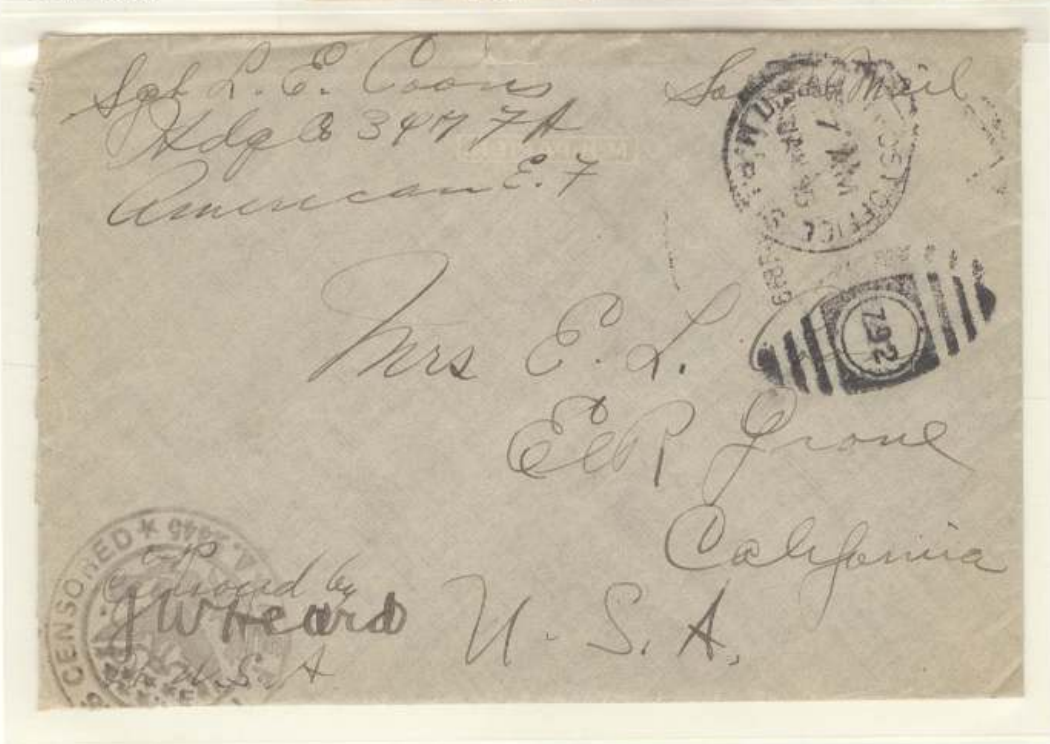 Sgt L. E. Coons
Hdq Co 347 FA
American E. F
Mail
POST OFFICE
7 AM
792
Mrs E. L.
Elk Grove
California
U. S. A.
CENSORED
Censored by
JW Heard
U. S. A